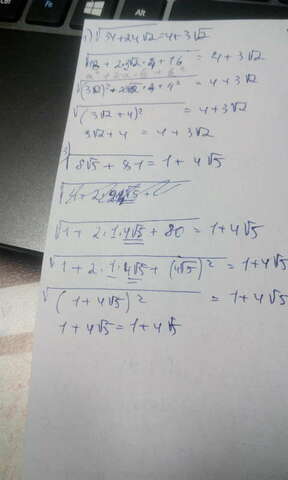 1) √34+24√2 = 4+3√2
√18 + 2·3√2·4 + 16 = 4 + 3√2
√(3√2)² + 2·3√2·4 + 4² = 4 + 3√2
√(3√2 + 4)² = 4 + 3√2
3√2 + 4 = 4 + 3√2
3) √8√5 + 81 = 1 + 4√5
√1 + 2·1·4√5 + 80 = 1 + 4√5
√1 + 2·1·4√5 + (4√5)² = 1 + 4√5
√(1 + 4√5)² = 1 + 4√5
1 + 4√5 = 1 + 4√5